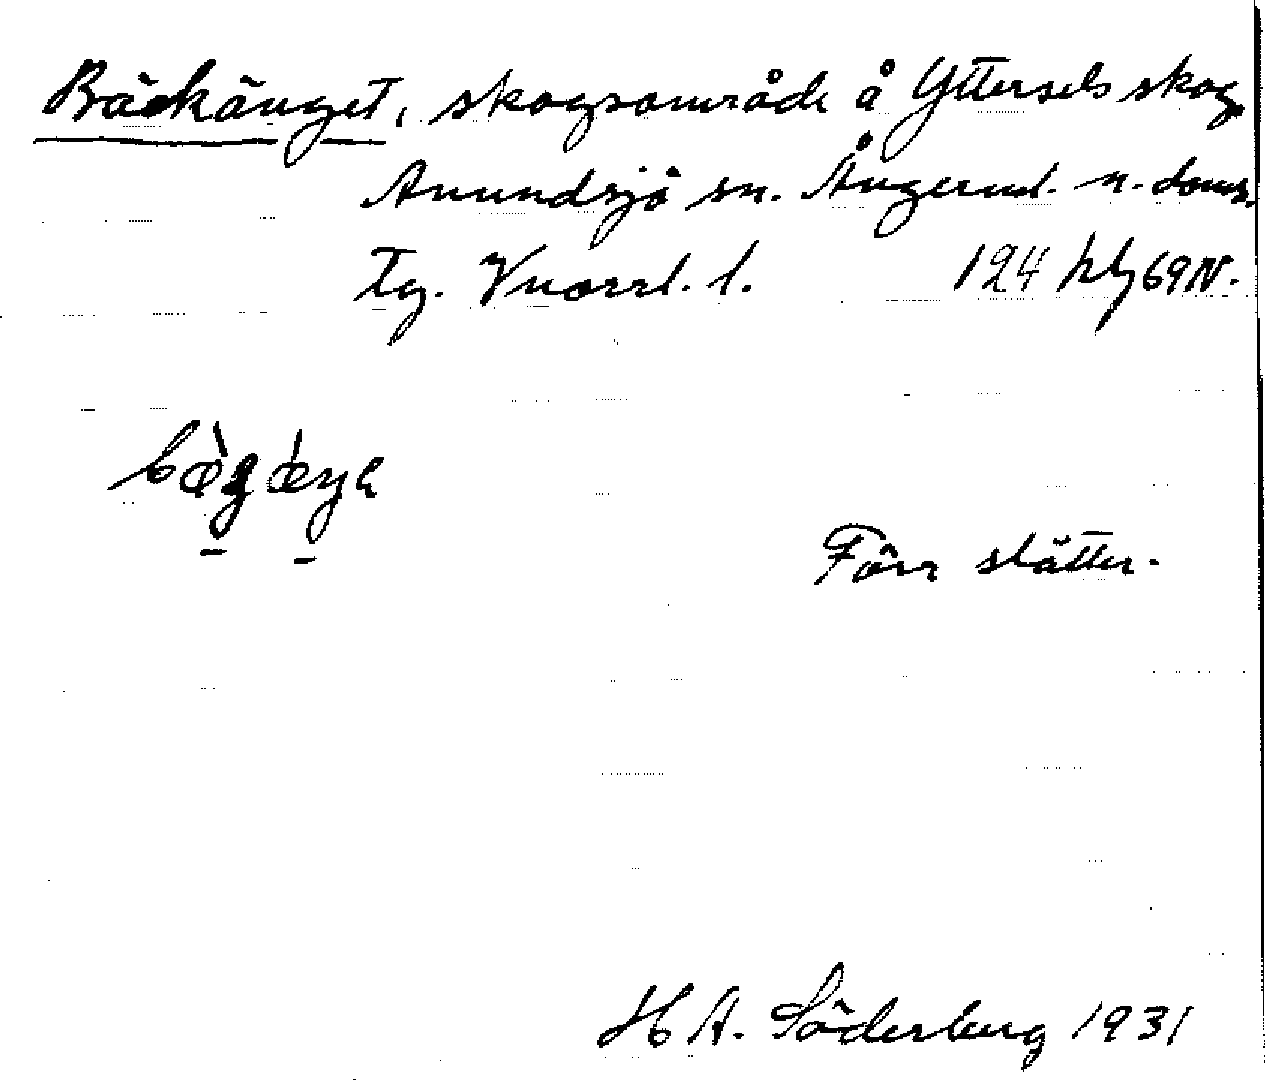 Bäckänget, skogsområde å Yttersels skog
Anundsjö sn. Ångerml. n. doms.
Tg. Vnorrl. l. 124 hly 69 N.
bøg œŋɛ
Förr slåtter.
H A. Söderberg 1931